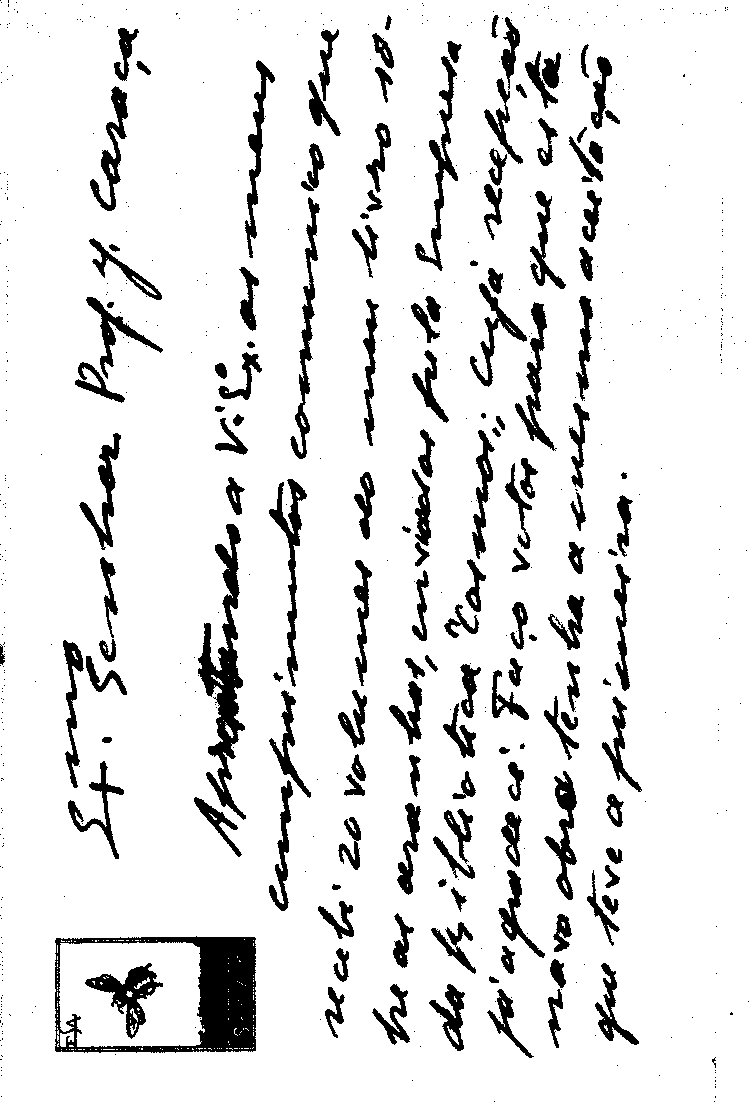 Exmo. Senhor Prof. J. Caraça
Apresentando a V. Exª. os meus
cumprimentos comunico que
recebi 20 volumes do meu livro sô-
bre as aranhas, enviados pela Empresa
da Biblioteca "Cosmos"; cuja recepção
já agradeci. Faço votos para que esta
nova obra tenha a mesma aceitação
que teve a primeira.